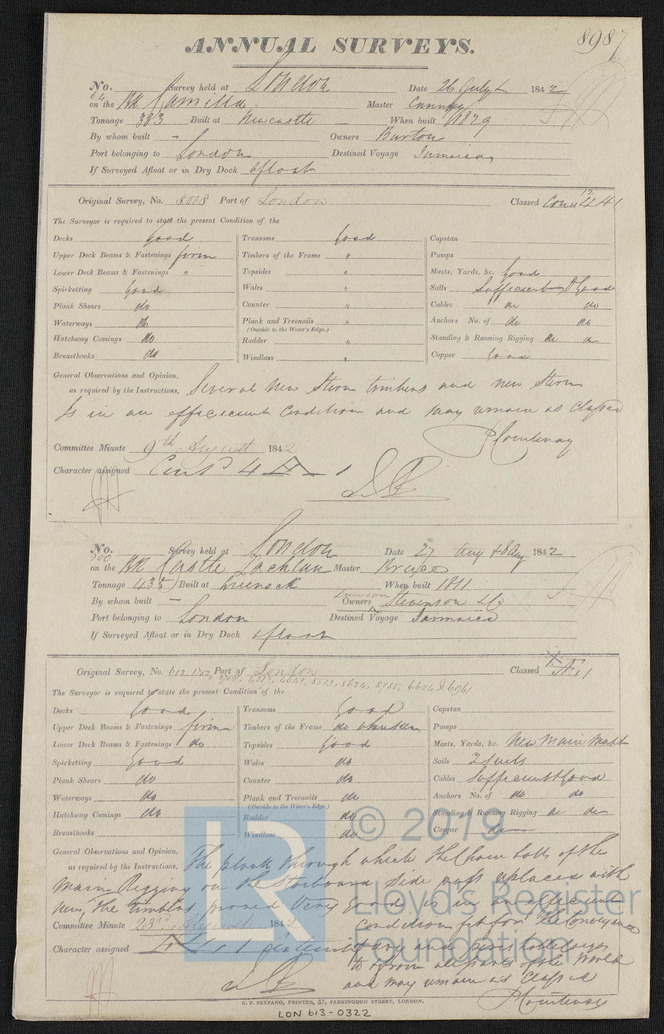 ANNUAL SURVEYS.
8987
No. 64 Survey held at London Date 26 July 1842
on the Bk Camilla Master
Tonnage 383 Built at Newcastle When built 1829
By whom built - Owners Burton
Port belonging to London Destined Voyage Jamaica
If Surveyed Afloat or in Dry Dock afloat
Original Survey, No. 8008 Port of London Classed
The Surveyor is required to state the present Condition of the
Decks good Transoms good Capstan
Upper Deck Beams & Fastenings firm Timbers of the Frame " Pumps
Lower Deck Beams & Fastenings " Topsides " Masts, Yards, &c. good
Spirketting good Wales " Sails Sufficient & Good
Plank Shears do Counter " Cables do do
Waterways do Plank and Treenails " Anchors No. of do do
(Outside to the Water's Edge.)
Hatchway Comings do Rudder " Standing & Running Rigging do do
Breasthooks do Windlass " Copper Good
General Observations and Opinion,
as required by the Instructions, Several New Stern timbers and new Stern
Is in an efficient Condition and may remain as Classed
P Courtenay
Committee Minute 9th August 1842
Character assigned
No. 700 Survey held at London Date 27 1842
on the Bk Castle Lachlan Master Bruce
Tonnage 435 Built at Greenock When built 1811
By whom built - Owners Stevenson & Co
Port belonging to London Destined Voyage Jamaica
If Surveyed Afloat or in Dry Dock afloat
Original Survey, No. Port of London Classed
The Surveyor is required to state the present Condition of the
Decks Good Transoms Good Capstan
Upper Deck Beams & Fastenings firm Timbers of the Frame do Pumps
Lower Deck Beams & Fastenings do Topsides Good Masts, Yards, &c. New Main Mast
Spirketting Good Wales do Sails 2 Suits
Plank Shears do Counter do Cables Sufficient & Good
Waterways do Plank and Treenails do Anchors No. of do do
(Outside to the Water's Edge.)
Hatchway Comings do Rudder do Standing & Running Rigging do do
Breasthooks Windlass do Copper
© 2019
General Observations and Opinion,
as required by the Instructions, The plank through which the Chain bolts of the
Main Rigging on the Starboard Side pass replaced with
new, the timbers proved Very good is in an efficient
Condition fit for the Conveyance
Committee Minute 23rd August 1842
Character assigned
to & from all parts of the World
and may remain as Classed
P Courtenay
LR
Lloyd's Register
Foundation
C. F. SEYFANG, PRINTER, 57, FARRINGDON STREET, LONDON.
LON 613-0322